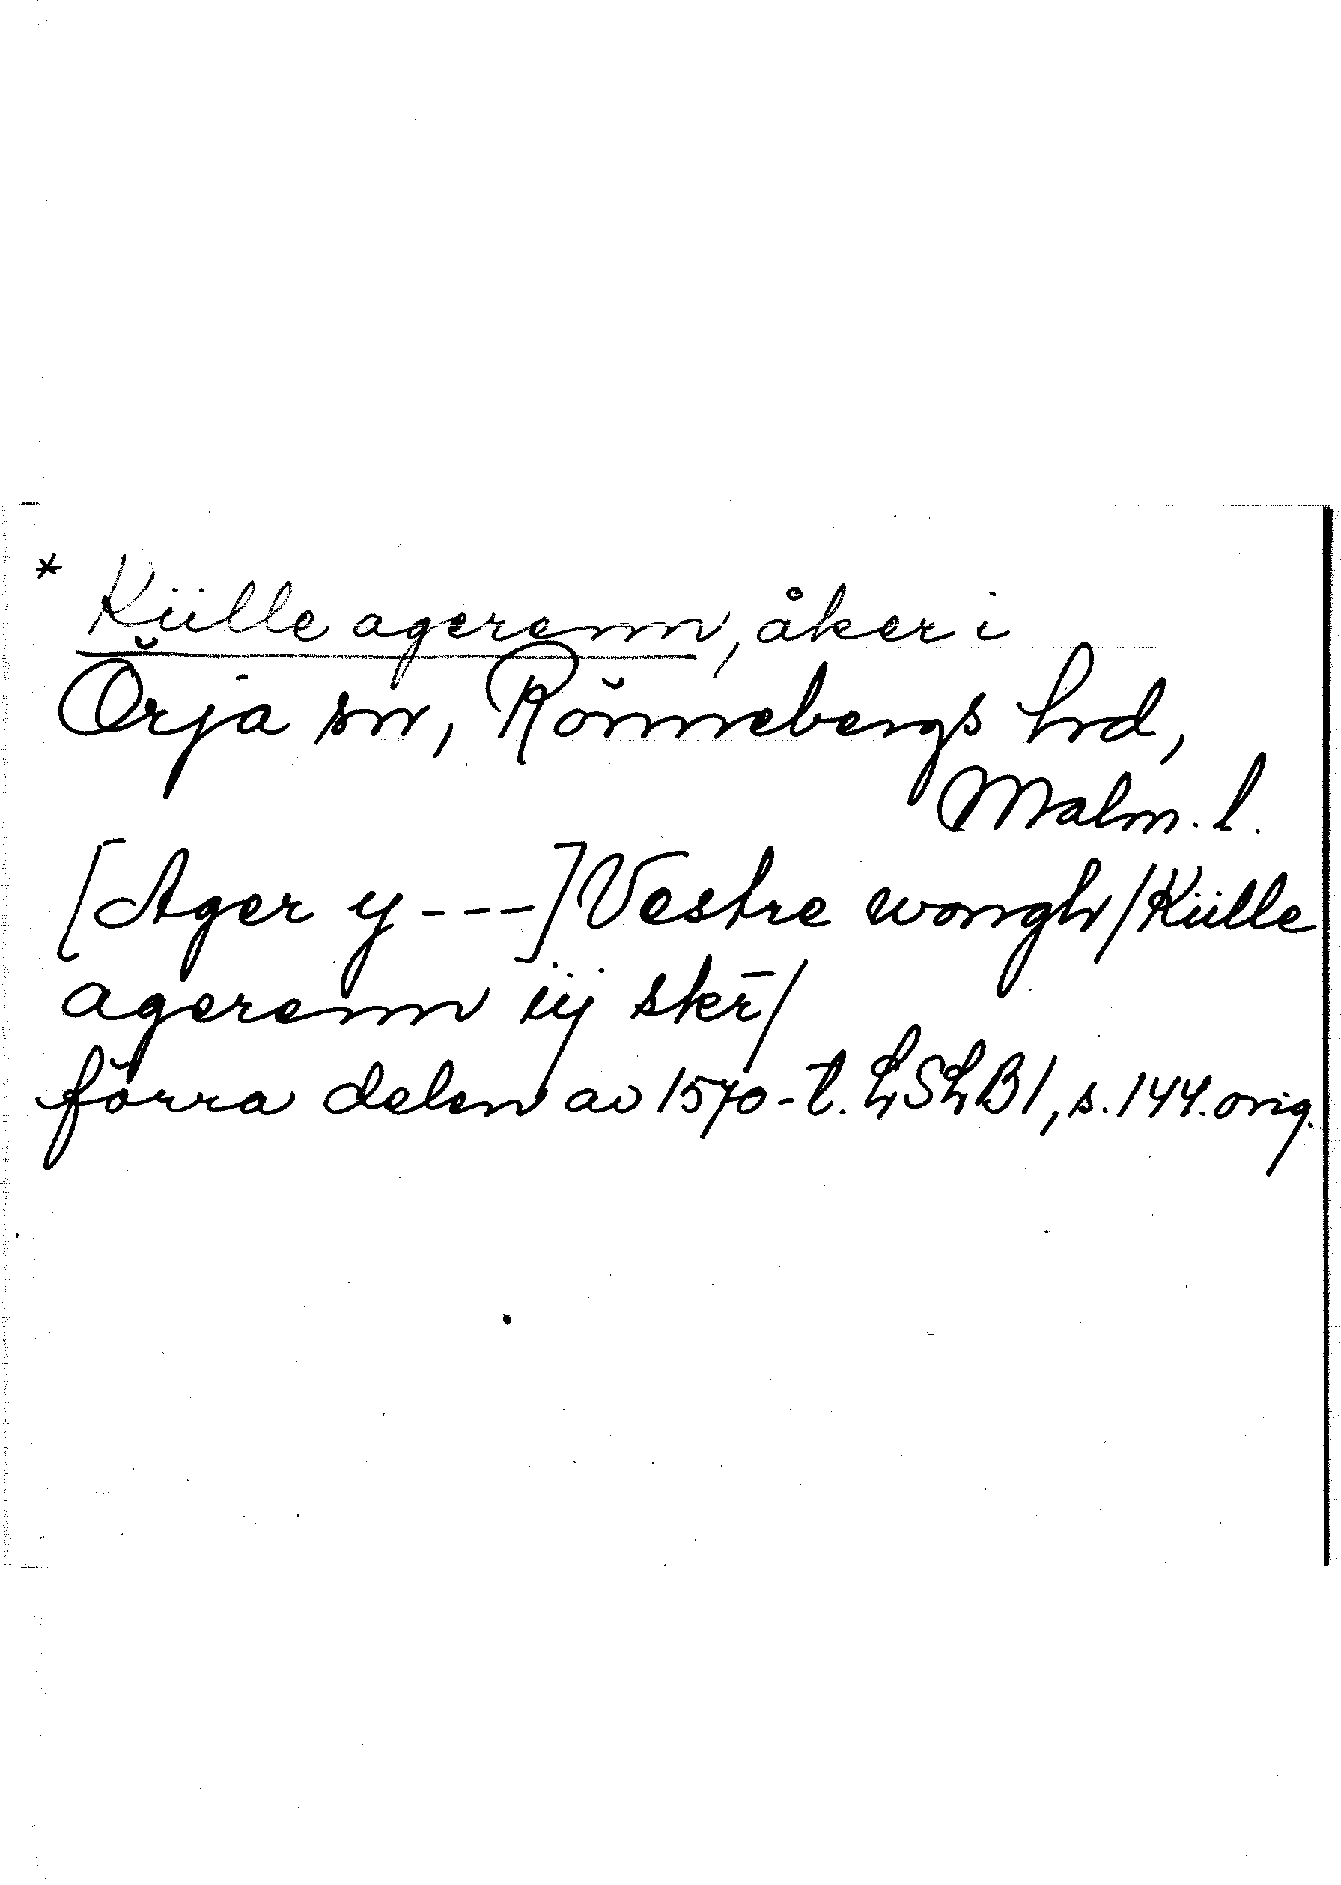 * Külle agerenn, åker i
Örja sn, Rönnebergs hrd,
Malm. l.
[Ager y ---] Vestre wongh/Külle
agerenn iij skr̄/
förra delen av 1570-t. LSLB1, s. 144. orig.